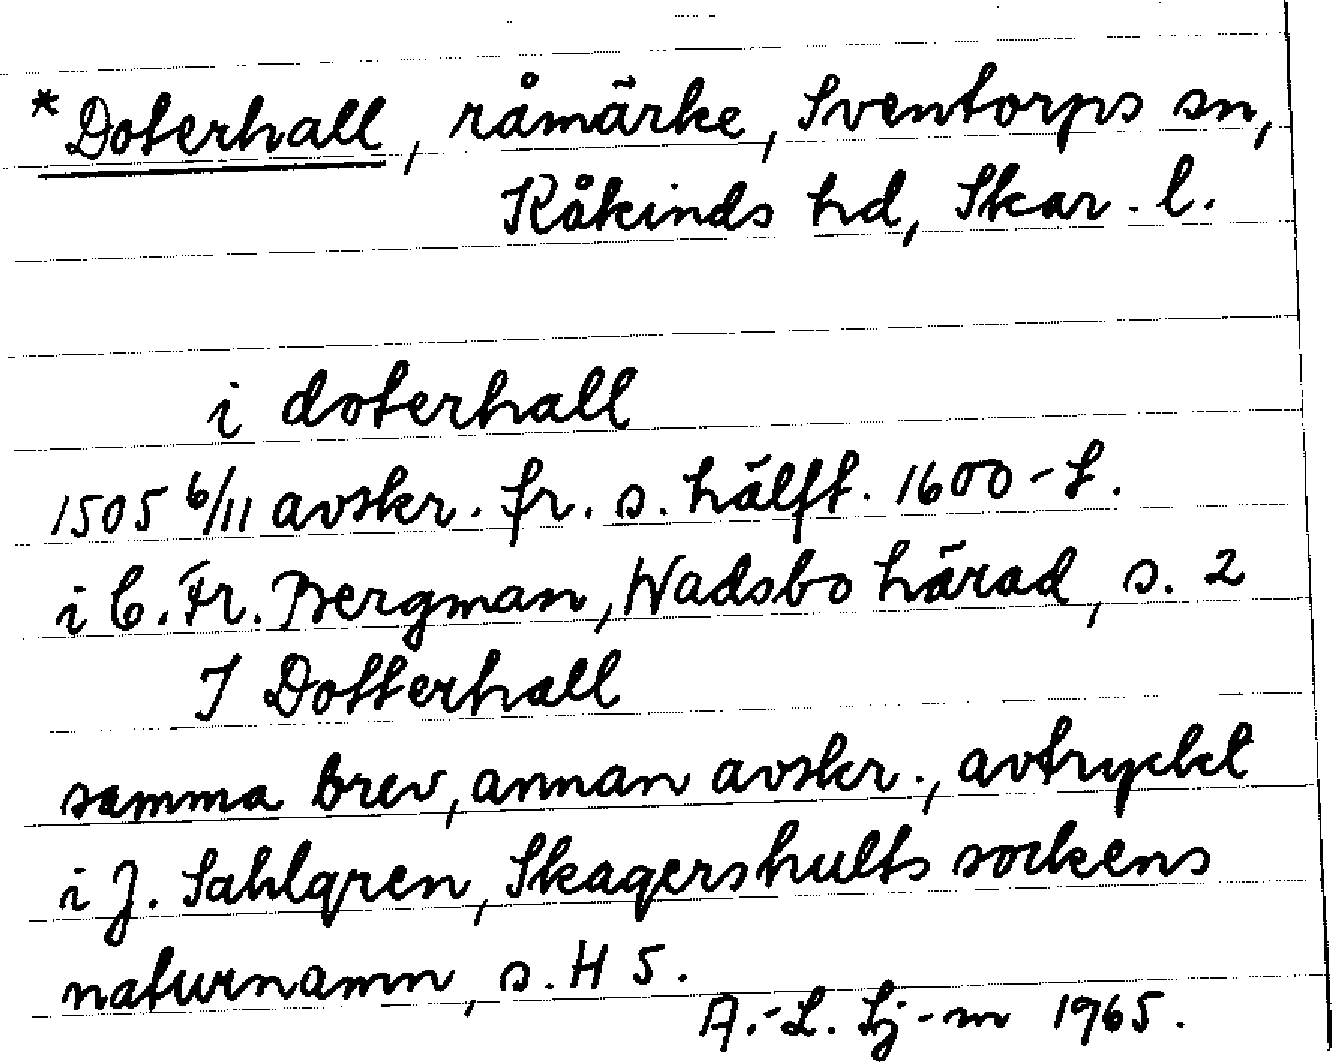 *Doterhall, råmärke, Sventorps sn,
Kåkinds hd, Skar. l.
i doterhall
1505 6/11 avskr. fr. s. hälft. 1600-t.
i C. Fr. Bergman, Wadsbo härad, s. 2
I Dotterhall
samma brev, annan avskr., avtryckt
i J. Sahlgren, Skagershults sockens
naturnamn, s. H 5.
A.-L. Lj-m 1965.